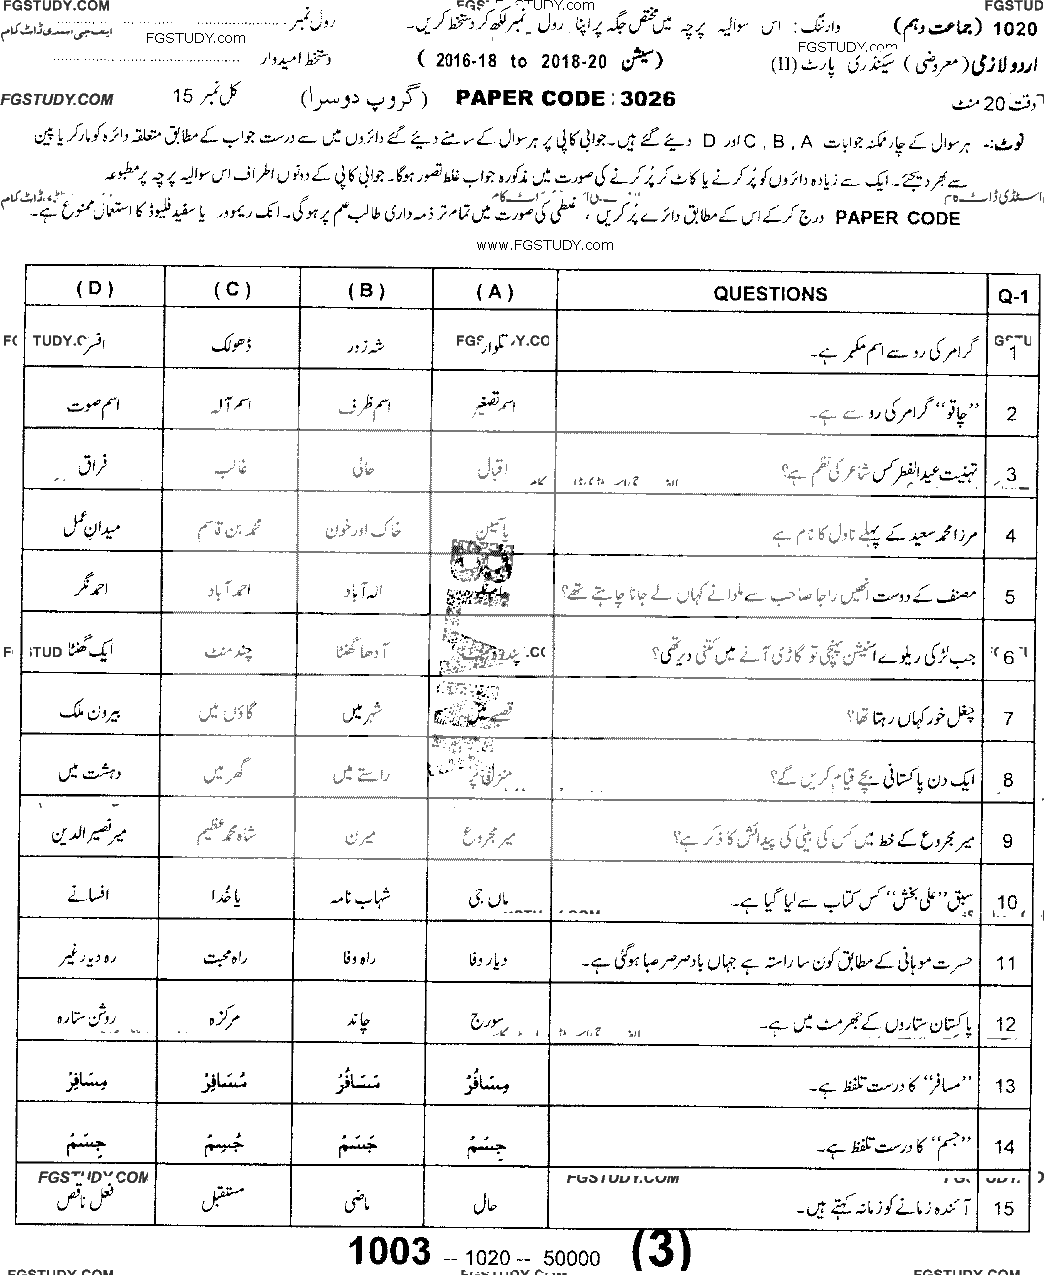 FGSTUDY.COM FGSTUDY.com FGSTUD
1020 (جماعت دہم) وارننگ: اس سوالیہ پرچہ میں مختص جگہ پر اپنا رول نمبر لکھ کر دستخط کریں۔ رول نمبر
FGSTUDY.com FGSTUDY.com
اردو لازمی (معروضی) سیکنڈری پارٹ (II) (سیشن 2018-20 to 2016-18) دستخط امیدوار
وقت 20 منٹ PAPER CODE : 3026 (گروپ دوسرا) کل نمبر 15 FGSTUDY.COM
نوٹ:- ہر سوال کے چار ممکنہ جوابات A , B , C اور D دیئے گئے ہیں۔ جوابی کاپی پر ہر سوال کے سامنے دیئے گئے دائروں میں سے درست جواب کے مطابق متعلقہ دائرہ کو مارکر یا پین
سے بھر دیجئے۔ ایک سے زیادہ دائروں کو پُر کرنے یا کاٹ کر پُر کرنے کی صورت میں مذکورہ جواب غلط تصور ہوگا۔ جوابی کاپی کے دونوں اطراف اس سوالیہ پرچہ پر مطبوعہ
PAPER CODE درج کر کے اس کے مطابق دائرے پُر کریں ، غلطی کی صورت میں تمام تر ذمہ داری طالب علم پر ہوگی۔ انک ریموور یا سفید فلیوڈ کا استعمال ممنوع ہے۔
www.FGSTUDY.com
Q-1 QUESTIONS (A) (B) (C) (D)
1 گرامر کی رو سے اسم مکبر ہے۔ تلوار شہ زور ڈھولک افسر
2 ’’چاقو‘‘ گرامر کی رو سے ہے۔ اسم تصغیر اسم ظرف اسم آلہ اسم صوت
3 تہنیت عید الفطر کس شاعر کی نظم ہے؟ اقبال حالی غالب فراق
4 مرزا محمد سعید کے پہلے ناول کا نام ہے یاسمین خاک اور خون محمد بن قاسم میدان عمل
5 مصنف کے دوست انھیں راجا صاحب سے ملوانے کہاں لے جانا چاہتے تھے؟ الہ آباد احمد آباد احمد نگر
6 جب لڑکی ریلوے اسٹیشن پہنچی تو گاڑی آنے میں کتنی دیر تھی؟ آدھا گھنٹا چند منٹ ایک گھنٹا
7 چغل خور کہاں رہتا تھا؟ قصبے میں شہر میں گاؤں میں بیرون ملک
8 ایک دن پاکستانی بچے قیام کریں گے؟ منزل پر راستے میں گھر میں دہشت میں
9 میر مجروح کے خط میں کس کی بیٹی کی پیدائش کا ذکر ہے؟ میر مجروح میرن شاہ محمد عظیم میر نصیر الدین
10 سبق ’’علی بخش‘‘ کس کتاب سے لیا گیا ہے۔ ماں جی شہاب نامہ یا خُدا افسانے
11 حسرت موہانی کے مطابق کون سا راستہ ہے جہاں باد صرصر صبا ہوگئی ہے۔ دیار وفا راہ وفا راہ محبت رہ دیار غیر
12 پاکستان ستاروں کے جھرمٹ میں ہے۔ سورج چاند مرکزہ روشن ستارہ
13 ’’مسافر‘‘ کا درست تلفظ ہے۔ مِسَافُرْ مَسَافُرْ مُسَافِرْ مِسَافِرْ
14 ’’جسم‘‘ کا درست تلفظ ہے۔ جِسْمْ جَسَمْ جُسِمْ جِسَمْ
FGSTUDY.COM FGSTUDY.COM
15 آئندہ زمانے کو زمانہ کہتے ہیں۔ حال ماضی مستقبل فعل ناقص
1003 -- 1020 -- 50000 (3)